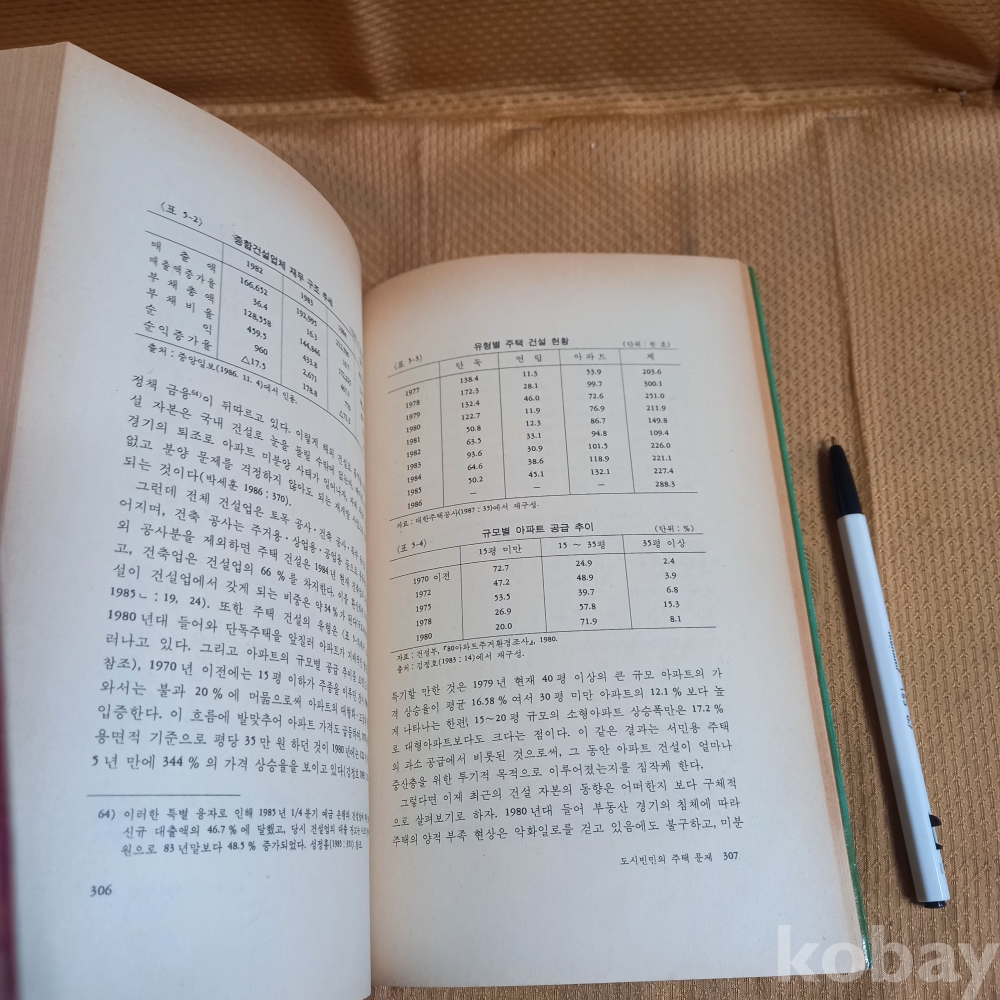 〈표 5-2〉
종합건설업체 재무 구조 추세
1982 1983 1984
매출액 166,652 192,995
매출액증가율 36.4 16.3
부채총액 128,558 144,846
부채비율 459.5 433.8
순익 960 2,671
순익증가율 △17.5 178.8
출처 : 중앙일보(1986. 11. 4)에서 인용.
정책 금융64)이 뒤따르고 있다. 이렇게 해외 건설로
설 자본은 국내 건설로 눈을 돌릴 수밖에 없는데,
경기의 퇴조로 아파트 미분양 사태가 일어나자,
없고 분양 문제를 걱정하지 않아도 되는 재개발
되는 것이다(박세훈 1986 : 370).
그런데 전체 건설업은 토목 공사·건축 공사·특수
어지며, 건축 공사는 주거용·상업용·공업용 등으로
외 공사분을 제외하면 주택 건설은 1984년 현재
고, 건축업은 건설업의 66 %를 차지한다. 이를
설이 건설업에서 갖게 되는 비중은 약 34 %가
1985ㄴ : 19, 24). 또한 주택 건설의 유형은 〈표 5-3〉에서
1980년대 들어와 단독주택을 앞질러 아파트가
러나고 있다. 그리고 아파트의 규모별 공급 추이를
참조), 1970년 이전에는 15평 이하가 주종을 이루던 것이
와서는 불과 20 %에 머뭄으로써 아파트의 대형화·고
입증한다. 이 흐름에 발맞추어 아파트 가격도
용면적 기준으로 평당 35만 원 하던 것이 1980년에는
5년 만에 344 %의 가격 상승율을 보이고 있다(김정호
64) 이러한 특별 융자로 인해 1985년 1/4분기 예금 은행의
신규 대출액의 46.7 %에 달했고, 당시 건설업의 대출 잔고는
원으로 83년말보다 48.5 % 증가되었다. 성정홍(1985 :
306
유형별 주택 건설 현황
〈표 5-3〉 (단위 : 천 호)
단독 연립 아파트 계
1977 138.4 11.3 53.9 203.6
1978 172.3 28.1 99.7 300.1
1979 132.4 46.0 72.6 251.0
1980 122.7 11.9 76.9 211.9
1981 50.8 12.3 86.7 149.8
1982 63.5 33.1 94.8 109.4
1983 93.6 30.9 101.5 226.0
1984 64.6 38.6 118.9 221.1
1985 50.2 45.1 132.1 227.4
1986 — — — 288.3
자료 : 대한주택공사(1987 : 35)에서 재구성.
규모별 아파트 공급 추이
〈표 5-4〉 (단위 : %)
15평 미만 15 ~ 35평 35평 이상
1970 이전 72.7 24.9 2.4
1972 47.2 48.9 3.9
1975 53.5 39.7 6.8
1978 26.9 57.8 15.3
1980 20.0 71.9 8.1
자료 : 건설부, 『80아파트주거환경조사』, 1980.
출처 : 김정호(1983 : 14)에서 재구성.
특기할 만한 것은 1979년 현재 40평 이상의 큰 규모 아파트의 가
격 상승율이 평균 16.58 %여서 30평 미만 아파트의 12.1 %보다 높
게 나타나는 한편, 15~20평 규모의 소형아파트 상승폭만은 17.2 %
로 대형아파트보다도 크다는 점이다. 이 같은 결과는 서민용 주택
의 과소 공급에서 비롯된 것으로써, 그 동안 아파트 건설이 얼마나
중산층을 위한 투기적 목적으로 이루어졌는지를 짐작케 한다.
그렇다면 이제 최근의 건설 자본의 동향은 어떠한지 보다 구체적
으로 살펴보기로 하자. 1980년대 들어 부동산 경기의 침체에 따라
주택의 양적 부족 현상은 악화일로를 걷고 있음에도 불구하고, 미분
도시빈민의 주택 문제 307
kobay